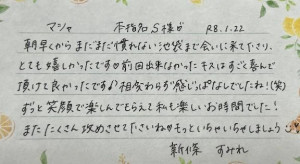 マシャ 本指名 S様 R8.1.22
朝早くからまだまだ慣れない池袋まで会いに来て下さり、
とても嬉しかったです 前回出来なかったキスはすごく喜んで
頂けて良かったです♪相変わらず感じっぱなしでしたね!(笑)
ずっと笑顔で楽しんでもらえて私も楽しいお時間でした!
またたくさん攻めさせて下さいねもっといちゃいちゃしましょう♡
新條 すみれ